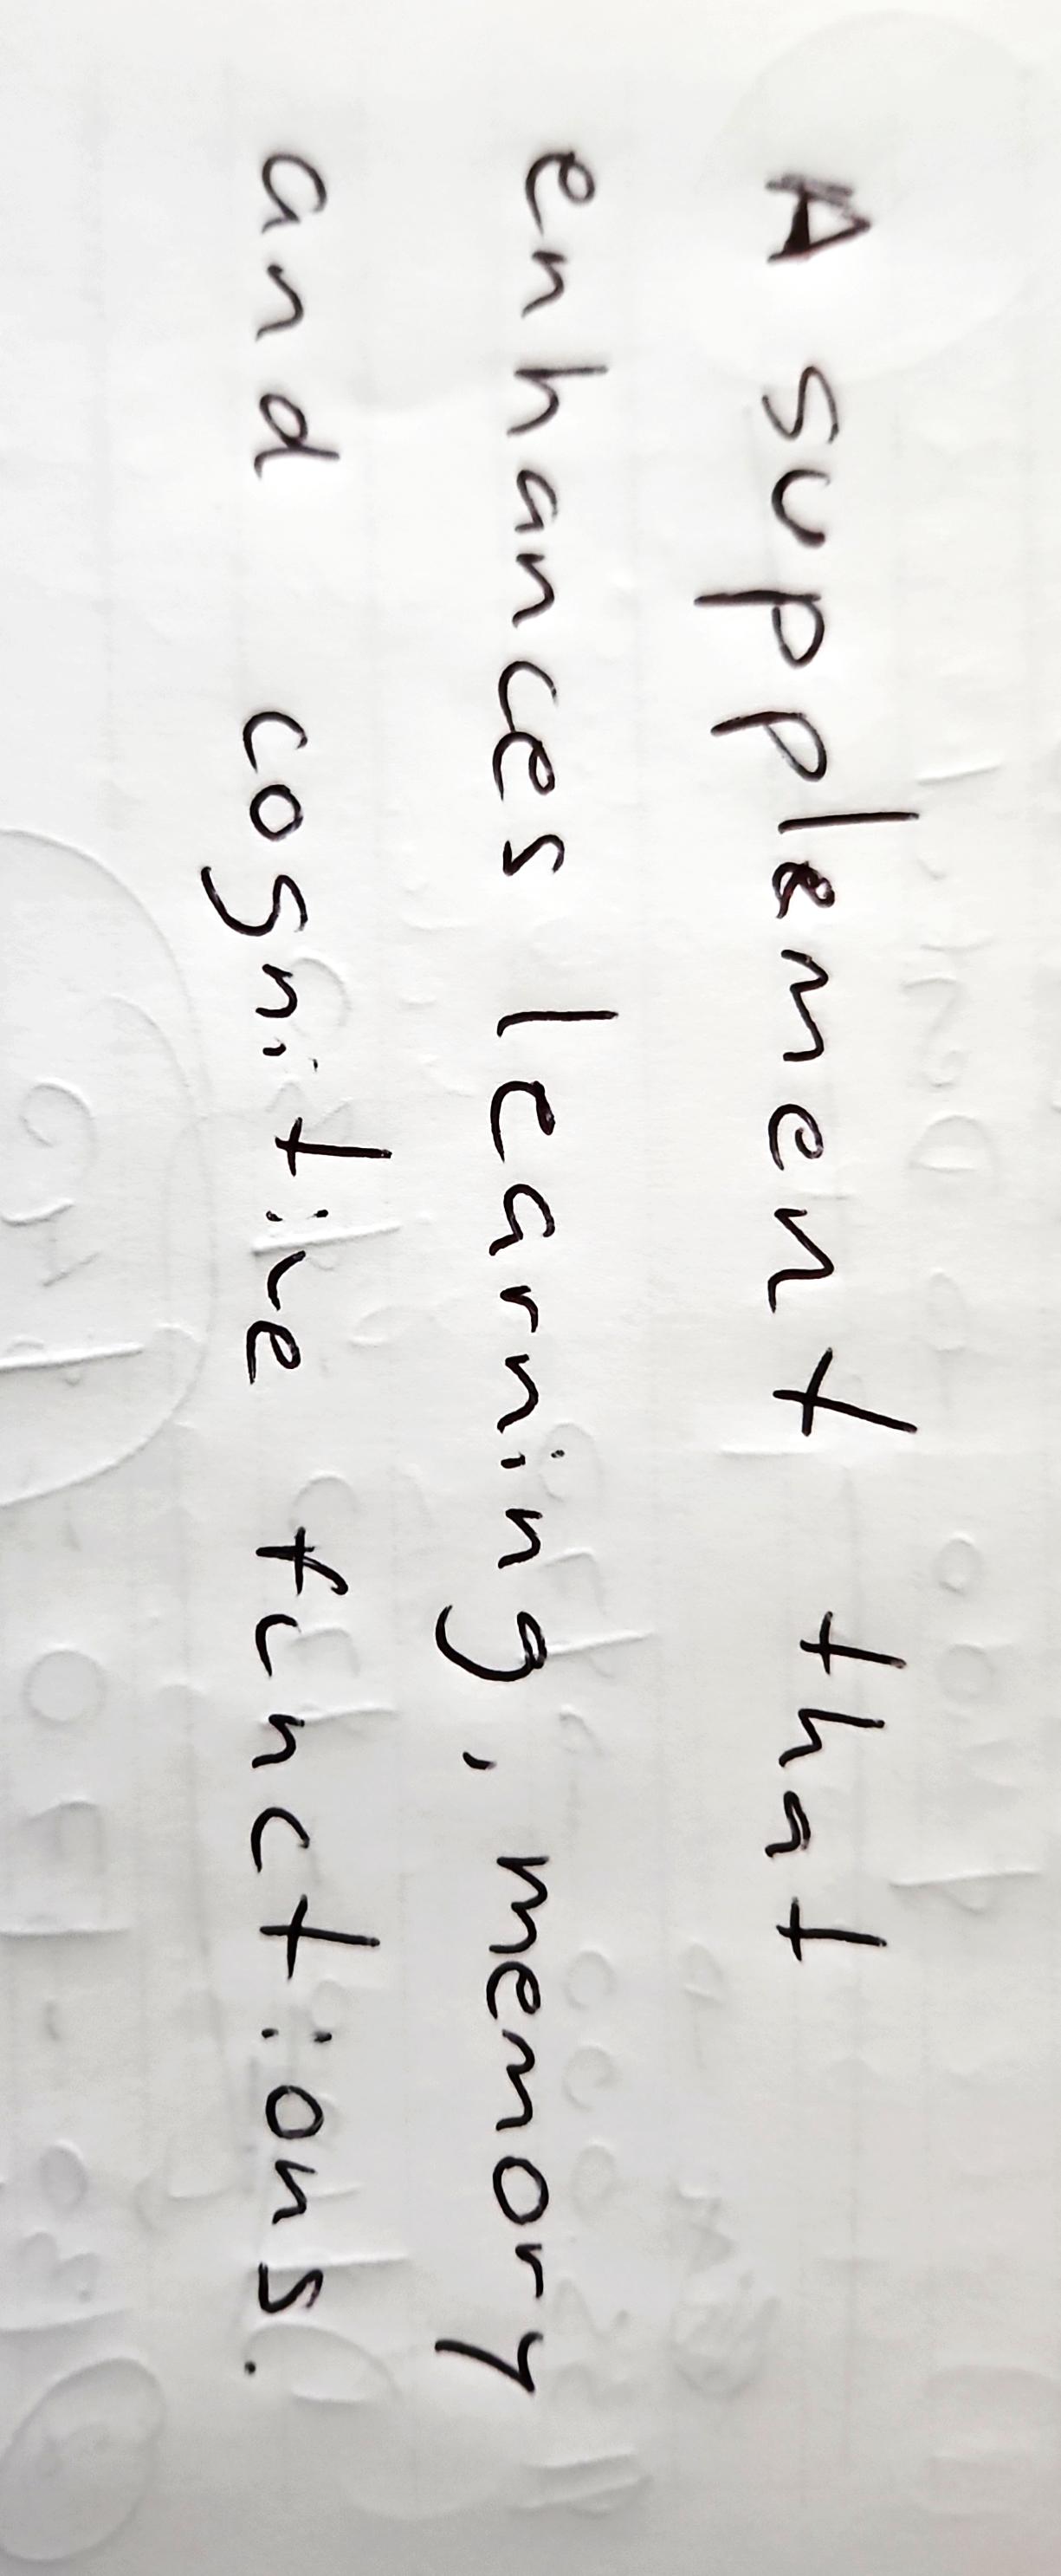 A supplement that
enhances learning, memory
and cognitive functions.